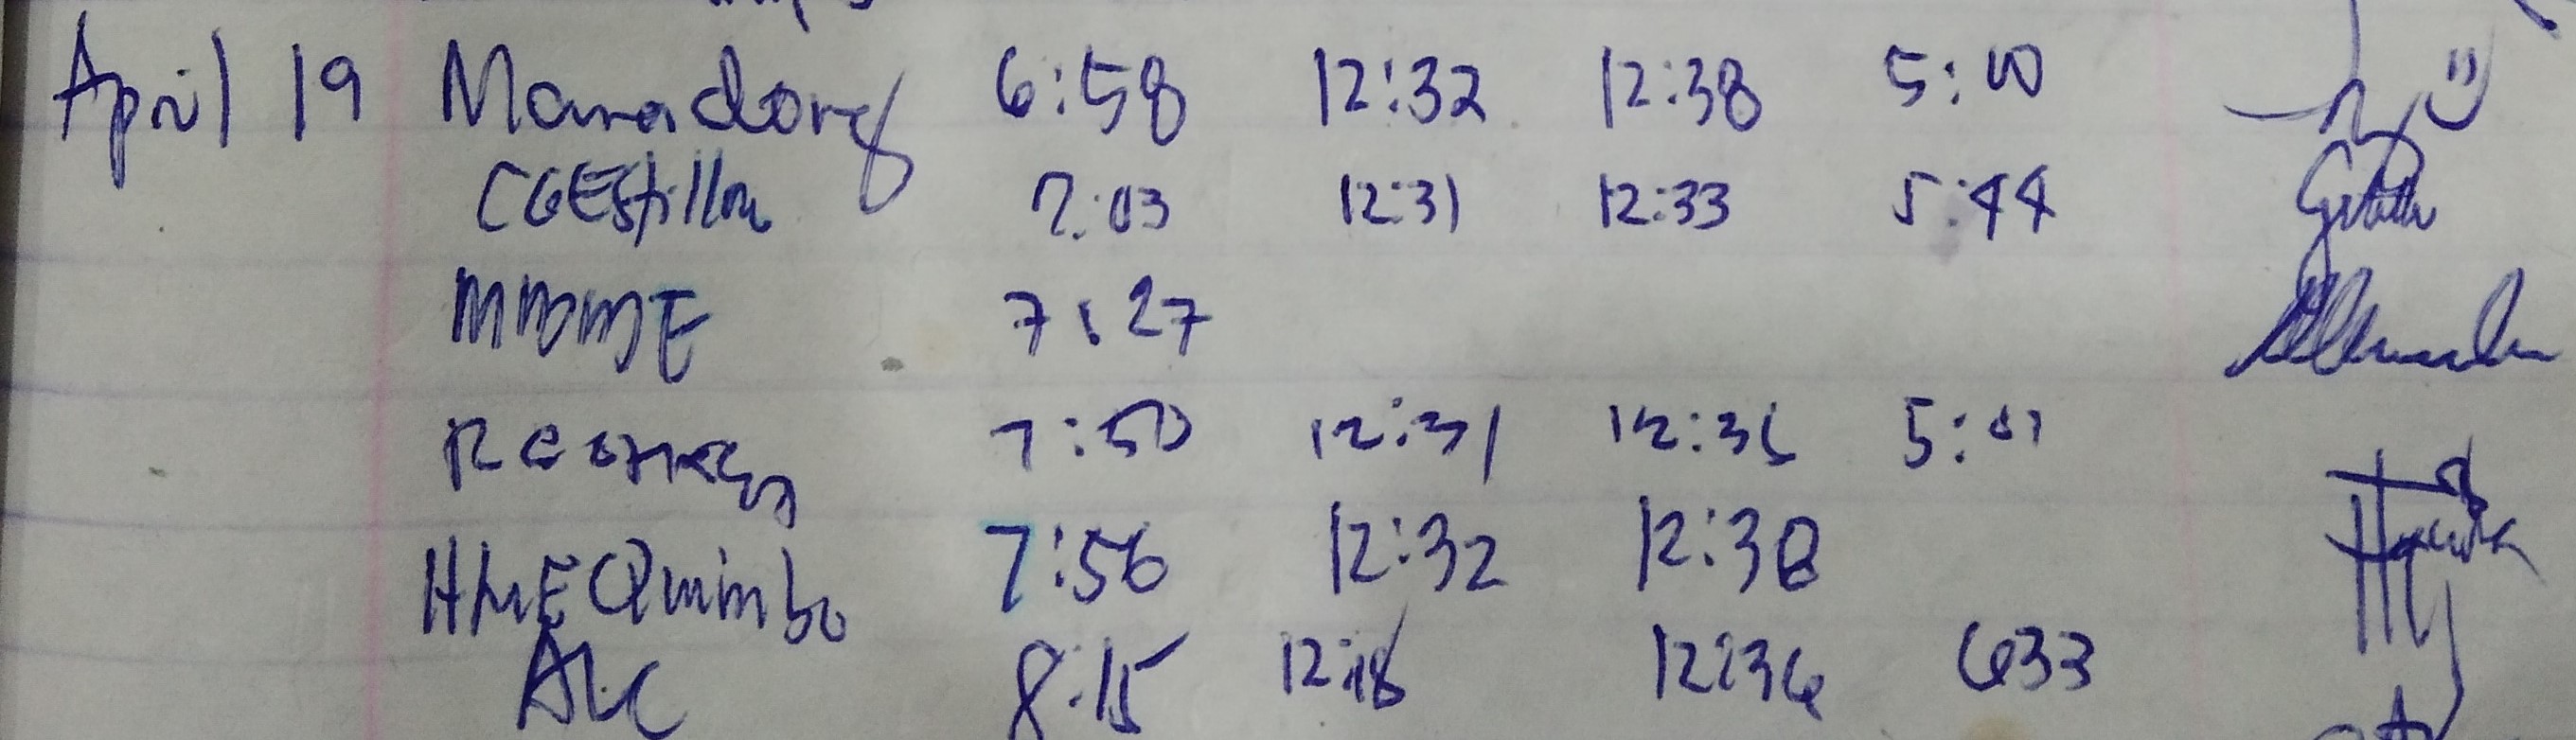 April 19 6:58 12:32 12:38 5:00
CGEstillon 7:03 12:31 12:33 5:44
7:27
7:50 12:31 12:36 5:01
HME Quimbo 7:56 12:32 12:38
ALC 8:15 12:18 12:36 633